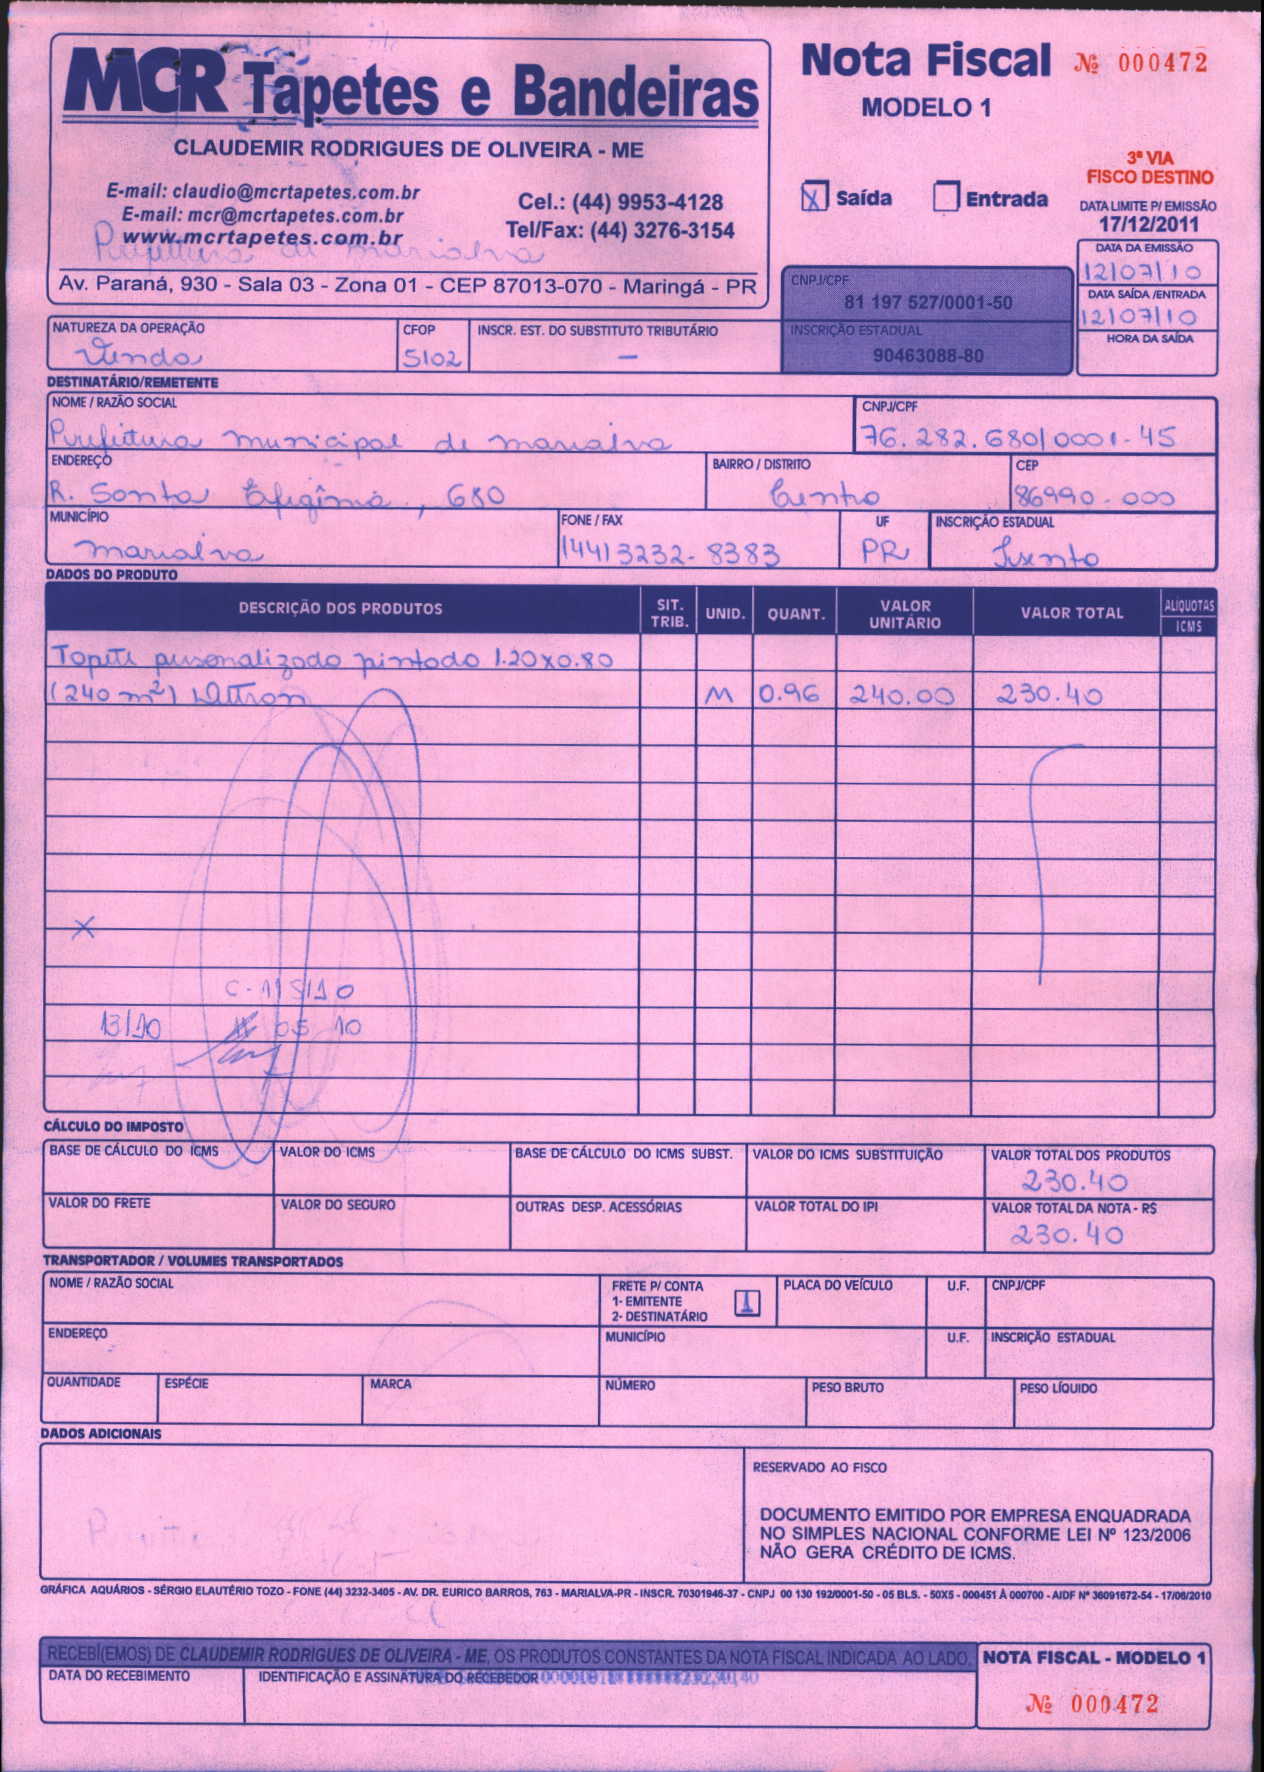 MCR Tapetes e Bandeiras
CLAUDEMIR RODRIGUES DE OLIVEIRA - ME
E-mail: claudio@mcrtapetes.com.br
E-mail: mcr@mcrtapetes.com.br
www.mcrtapetes.com.br
Cel.: (44) 9953-4128
Tel/Fax: (44) 3276-3154
Prefeitura de marialva
Av. Paraná, 930 - Sala 03 - Zona 01 - CEP 87013-070 - Maringá - PR
Nota Fiscal № 000472
MODELO 1
X Saída Entrada
3ª VIA
FISCO DESTINO
DATA LIMITE P/ EMISSÃO
17/12/2011
DATA DA EMISSÃO
12/07/10
DATA SAÍDA /ENTRADA
12/07/10
HORA DA SAÍDA
CNPJ/CPF
81 197 527/0001-50
INSCRIÇÃO ESTADUAL
90463088-80
NATUREZA DA OPERAÇÃO CFOP INSCR. EST. DO SUBSTITUTO TRIBUTÁRIO
Venda 5102 —
DESTINATÁRIO/REMETENTE
NOME / RAZÃO SOCIAL CNPJ/CPF
Prefeitura municipal de marialva 76.282.680/0001-45
ENDEREÇO BAIRRO / DISTRITO CEP
R. Santa Efigênia, 680 Centro 86990-000
MUNICÍPIO FONE / FAX UF INSCRIÇÃO ESTADUAL
marialva (44) 3232-8383 PR Isento
DADOS DO PRODUTO
DESCRIÇÃO DOS PRODUTOS SIT. TRIB. UNID. QUANT. VALOR UNITÁRIO VALOR TOTAL ALÍQUOTAS ICMS
Tapete personalizado pintado 1.20x0.80
(240 m²) M 0.96 240.00 230.40
X
C-115/10
13/10 05 10
CÁLCULO DO IMPOSTO
BASE DE CÁLCULO DO ICMS VALOR DO ICMS BASE DE CÁLCULO DO ICMS SUBST. VALOR DO ICMS SUBSTITUIÇÃO VALOR TOTAL DOS PRODUTOS
230.40
VALOR DO FRETE VALOR DO SEGURO OUTRAS DESP. ACESSÓRIAS VALOR TOTAL DO IPI VALOR TOTAL DA NOTA - R$
230.40
TRANSPORTADOR / VOLUMES TRANSPORTADOS
NOME / RAZÃO SOCIAL FRETE P/ CONTA PLACA DO VEÍCULO U.F. CNPJ/CPF
1- EMITENTE 1
2- DESTINATÁRIO
ENDEREÇO MUNICÍPIO U.F. INSCRIÇÃO ESTADUAL
QUANTIDADE ESPÉCIE MARCA NÚMERO PESO BRUTO PESO LÍQUIDO
DADOS ADICIONAIS
RESERVADO AO FISCO
DOCUMENTO EMITIDO POR EMPRESA ENQUADRADA
NO SIMPLES NACIONAL CONFORME LEI Nº 123/2006
NÃO GERA CRÉDITO DE ICMS.
GRÁFICA AQUÁRIOS - SÉRGIO ELAUTÉRIO TOZO - FONE (44) 3232-3405 - AV. DR. EURICO BARROS, 763 - MARIALVA-PR - INSCR. 70301946-37 - CNPJ 00 130 192/0001-50 - 05 BLS. - 50X5 - 000451 À 000700 - AIDF Nº 36091672-54 - 17/06/2010
RECEBI(EMOS) DE CLAUDEMIR RODRIGUES DE OLIVEIRA - ME, OS PRODUTOS CONSTANTES DA NOTA FISCAL INDICADA AO LADO.
DATA DO RECEBIMENTO IDENTIFICAÇÃO E ASSINATURA DO RECEBEDOR
NOTA FISCAL - MODELO 1
№ 000472